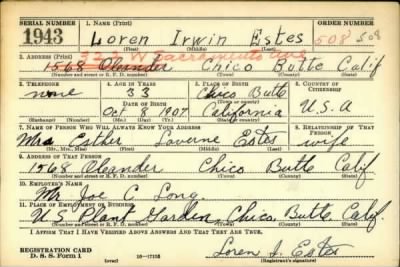 SERIAL NUMBER
1. NAME (Print)
1943
Loren Irwin Estes
508 508
(First) (Middle) (Last)
532 W Sacramento Ave
2. ADDRESS (Print)
1568 Oleander Chico Butte Calif
(Number and street or R. F. D. number) (Town) (County) (State)
3. TELEPHONE
none
(Exchange) (Number)
4. AGE IN YEARS
33
DATE OF BIRTH
Oct 8 1907
(Mo.) (Day) (Yr.)
5. PLACE OF BIRTH
Chico Butte
(Town or county)
California
(State or country)
6. COUNTRY OF CITIZENSHIP
U.S.A
7. NAME OF PERSON WHO WILL ALWAYS KNOW YOUR ADDRESS
Mrs Esther Laverne Estes
(Mr., Mrs., Miss) (First) (Middle) (Last)
8. RELATIONSHIP OF THAT PERSON
wife
9. ADDRESS OF THAT PERSON
1568 Oleander Chico Butte Calif
(Number and street or R. F. D. number) (Town) (County) (State)
10. EMPLOYER'S NAME
Mr Joe C Long
11. PLACE OF EMPLOYMENT OR BUSINESS
U S Plant Garden, Chico, Butte, Calif.
(Number and street or R. F. D. number) (Town) (County) (State)
I AFFIRM THAT I HAVE VERIFIED ABOVE ANSWERS AND THAT THEY ARE TRUE.
REGISTRATION CARD
D. S. S. Form 1
(over)
Loren I. Estes
(Registrant's signature)